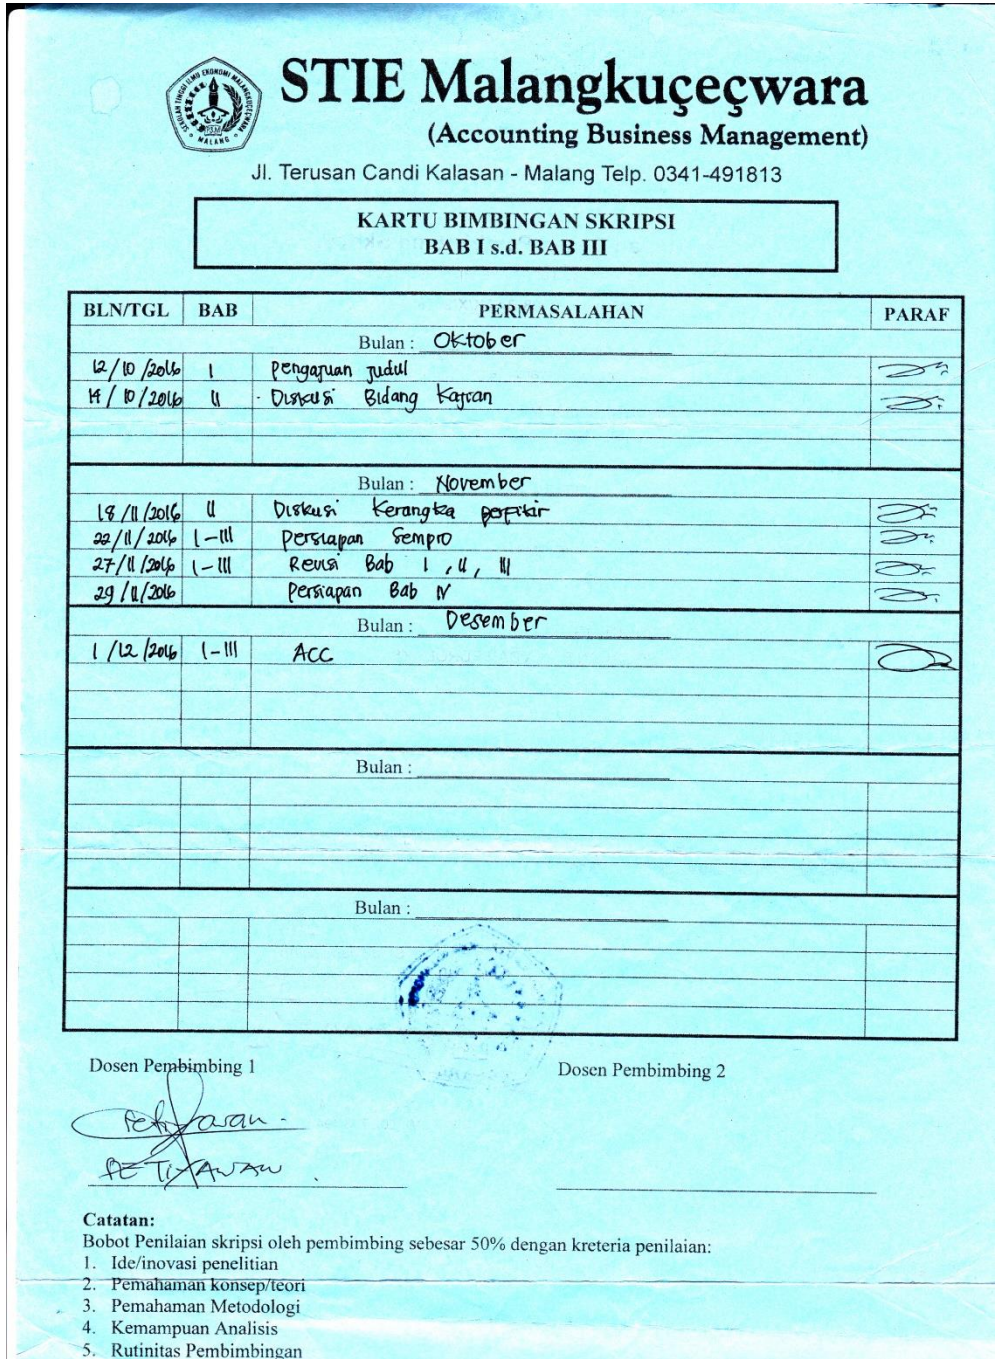 SEKOLAH TINGGI ILMU EKONOMI MALANGKUCECWARA
MALANG
STIE Malangkuçeçwara
(Accounting Business Management)
Jl. Terusan Candi Kalasan - Malang Telp. 0341-491813
KARTU BIMBINGAN SKRIPSI
BAB I s.d. BAB III
BLN/TGL BAB PERMASALAHAN PARAF
Bulan : Oktober
12/10/2016 I Pengajuan Judul
14/10/2016 II - Diskusi Bidang Kajian
Bulan : November
18/11/2016 II Diskusi Kerangka
22/11/2016 I-III Persiapan Sempro
27/11/2016 I-III Revisi Bab I, II, III
29/11/2016 Persiapan Bab IV
Bulan : Desember
1/12/2016 I-III ACC
Bulan :
Bulan :
Dosen Pembimbing 1 Dosen Pembimbing 2
Catatan:
Bobot Penilaian skripsi oleh pembimbing sebesar 50% dengan kreteria penilaian:
1. Ide/inovasi penelitian
2. Pemahaman konsep/teori
3. Pemahaman Metodologi
4. Kemampuan Analisis
5. Rutinitas Pembimbingan